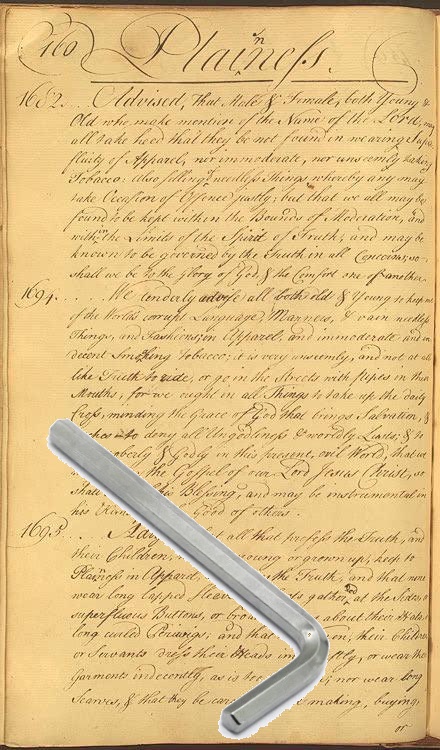 160 Plainness.
1682. . . Advised, That Male & Female, both Young &
Old who make mention of the Name of the Lord, may
all take heed that they be not found in wearing Supr
fluity of Apparel, nor immoderate, nor unseemly taking
Tobacco: Also selling needless Things whereby any may
take Occasion of Offence justly; but that we all may be
found to be kept within the Bounds of Moderation, and
within the Limits of the Spirit of Truth; and may be
known to be governed by the Truth in all Concerns, so
shall we be to the Glory of God, & the Comfort one of another.
1694. . . . . We tenderly advise all both old & Young to keep out
of the World's corrupt Language, Manners, & vain needless
Things, and Fashions, in Apparel; and immoderate and in
decent Smoking Tobacco; it is very unseemly, and not at all
like Truth to ride, or go in the Streets with Pipes in their
Mouths, for we ought in all Things to take up the daily
Cross, minding the Grace of God that brings Salvation, &
to deny all Ungodliness & worldly Lusts; & to
& Godly in this present, evil World; that
the Gospel of our Lord Jesus Christ, so
shall his Blessing, and may be instrumental in
his Good of others.
1695. . . all that profess the Truth, and
their Children, young or grown up, keep to
Plainness in Apparel, the Truth, and that none
wear long lapped Sleeves, gather'd at the Sides, or
superfluous Buttons, or about their Hats, or
long curled Periwigs; and that their Children
or Servants dress their Heads or wear their
Garments indecently, as is too nor wear long
Scarves, & that they be making, buying,
or